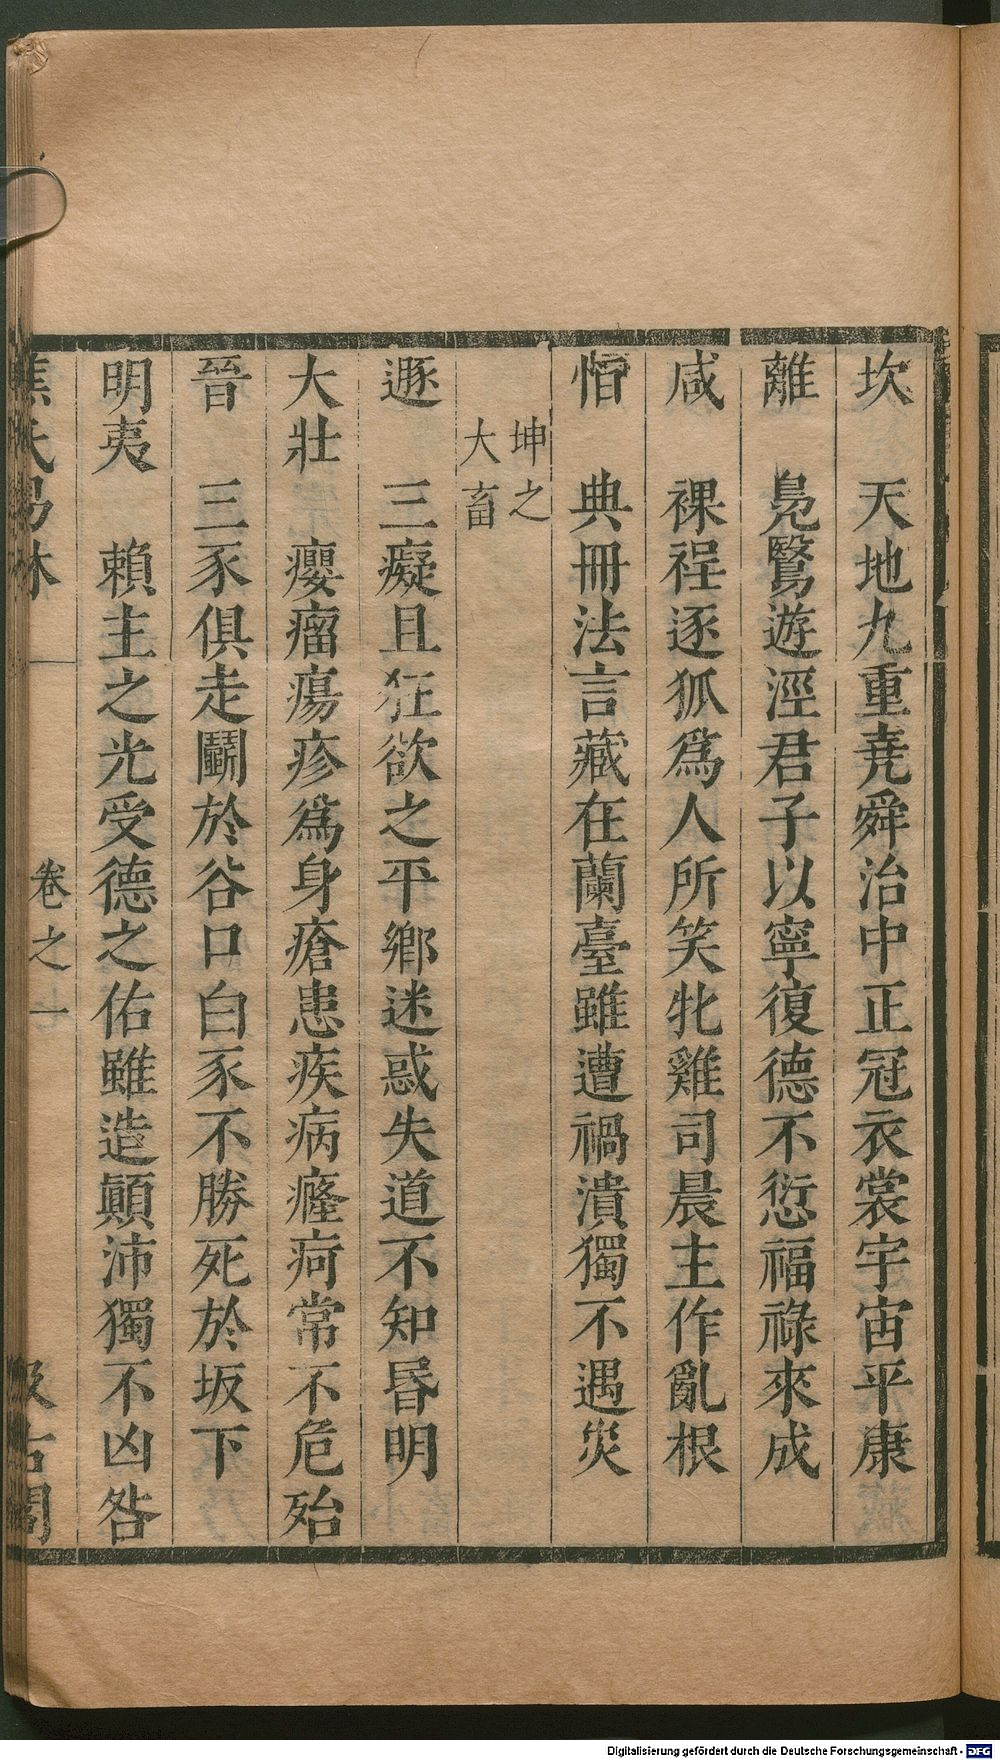 坎　天地九重堯舜治中正冠衣裳宇宙平康
離　鳧鷖遊涇君子以寧復德不愆福祿來成
咸　裸裎逐狐爲人所笑牝雞司晨主作亂根
恒　典冊法言藏在蘭臺雖遭禍潰獨不遇災
坤之
大畜
遯　三癡且狂欲之平鄉迷惑失道不知昏明
大壯　癭瘤瘍疹爲身瘡患疾病癃痾常不危殆
晉　三豕俱走鬭於谷口白豕不勝死於坂下
明夷　賴主之光受德之佑雖造顚沛獨不凶咎
焦氏易林　卷之七　汲古閣
Digitalisierung gefördert durch die Deutsche Forschungsgemeinschaft - DFG